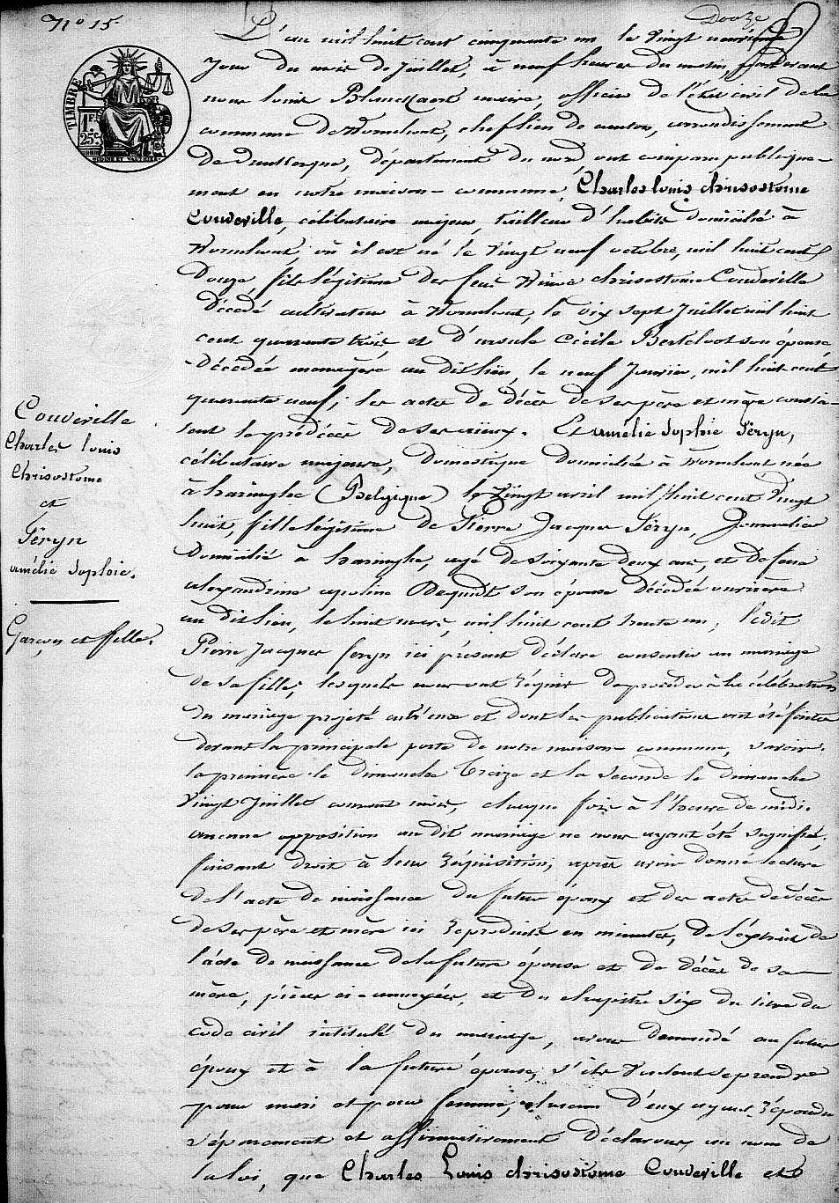 N° 15.
Douze
L'an mil huit cent cinquante un le vingt neuvième
jour du mois de Juillet, à neuf heures du matin, pardevant
nous louis Blanckaert maire, officier de l'état civil de la
commune de Wormhout, chef lieu de canton, arrondissement
de Dunkerque, département du nord, ont comparu publique-
ment en notre maison-commune, Charles louis chrisostome
Couveville, célibataire majeur, tailleur d'habits domicilié à
Wormhout, où il est né le vingt neuf octobre, mil huit cent
Douze, fils légitime des feus chrisostome Couveville
décédé cultivateur à Wormhout, le dix sept Juillet mil huit
cent quarante trois et d'ursule Cécile Berteloot son épouse
décédée ménagère au dit lieu, le neuf Janvier, mil huit cent
quarante neuf; les actes de décès de ses père et mère consta-
tent le prédécès de ses aïeux. Et amélie Sophie Féryn,
célibataire majeure, domestique domiciliée à Wormhout née
à haringhe (Belgique) le vingt avril mil huit cent vingt
huit, fille légitime de Pierre Jacques Féryn, Journalier
domicilié à haringhe, agé de soixante deux ans, et de feue
alexandrine apoline Dequidt son épouse décédée ouvrière
au dit lieu, le huit mars, mil huit cent trente un; ledit
Pierre Jacques feryn ici présent déclare consentir au mariage
de sa fille; lesquels nous ont requis de procéder à la célébration
du mariage projeté entr'eux et dont les publications ont été faites
devant la principale porte de notre maison commune, savoir:
la première le dimanche treize et la seconde le dimanche
vingt Juillet courant mois, chaque fois à l'heure de midi.
aucune opposition au dit mariage ne nous ayant été signifiée,
faisant droit à leur réquisition; après avoir donné lecture
de l'acte de naissance du futur époux et des actes de décès
de ses père et mère ici reproduits en minutes, de l'extrait de
l'acte de naissance de la future épouse et de décès de sa
mère, pièces ci-annexées, et du chapitre six du titre du
code civil intitulé du mariage, avons demandé au futur
époux et à la future épouse, s'ils veulent se prendre
pour mari et pour femme, chacun d'eux ayant répondu
séparément et affirmativement déclarons au nom de
la loi, que Charles Louis chrisostome Couveville et
Couveville
Charles louis
Chrisostome
et
Féryn
amélie Sophie.
Garçon et fille.
TIMBRE
1 F.
25 c.